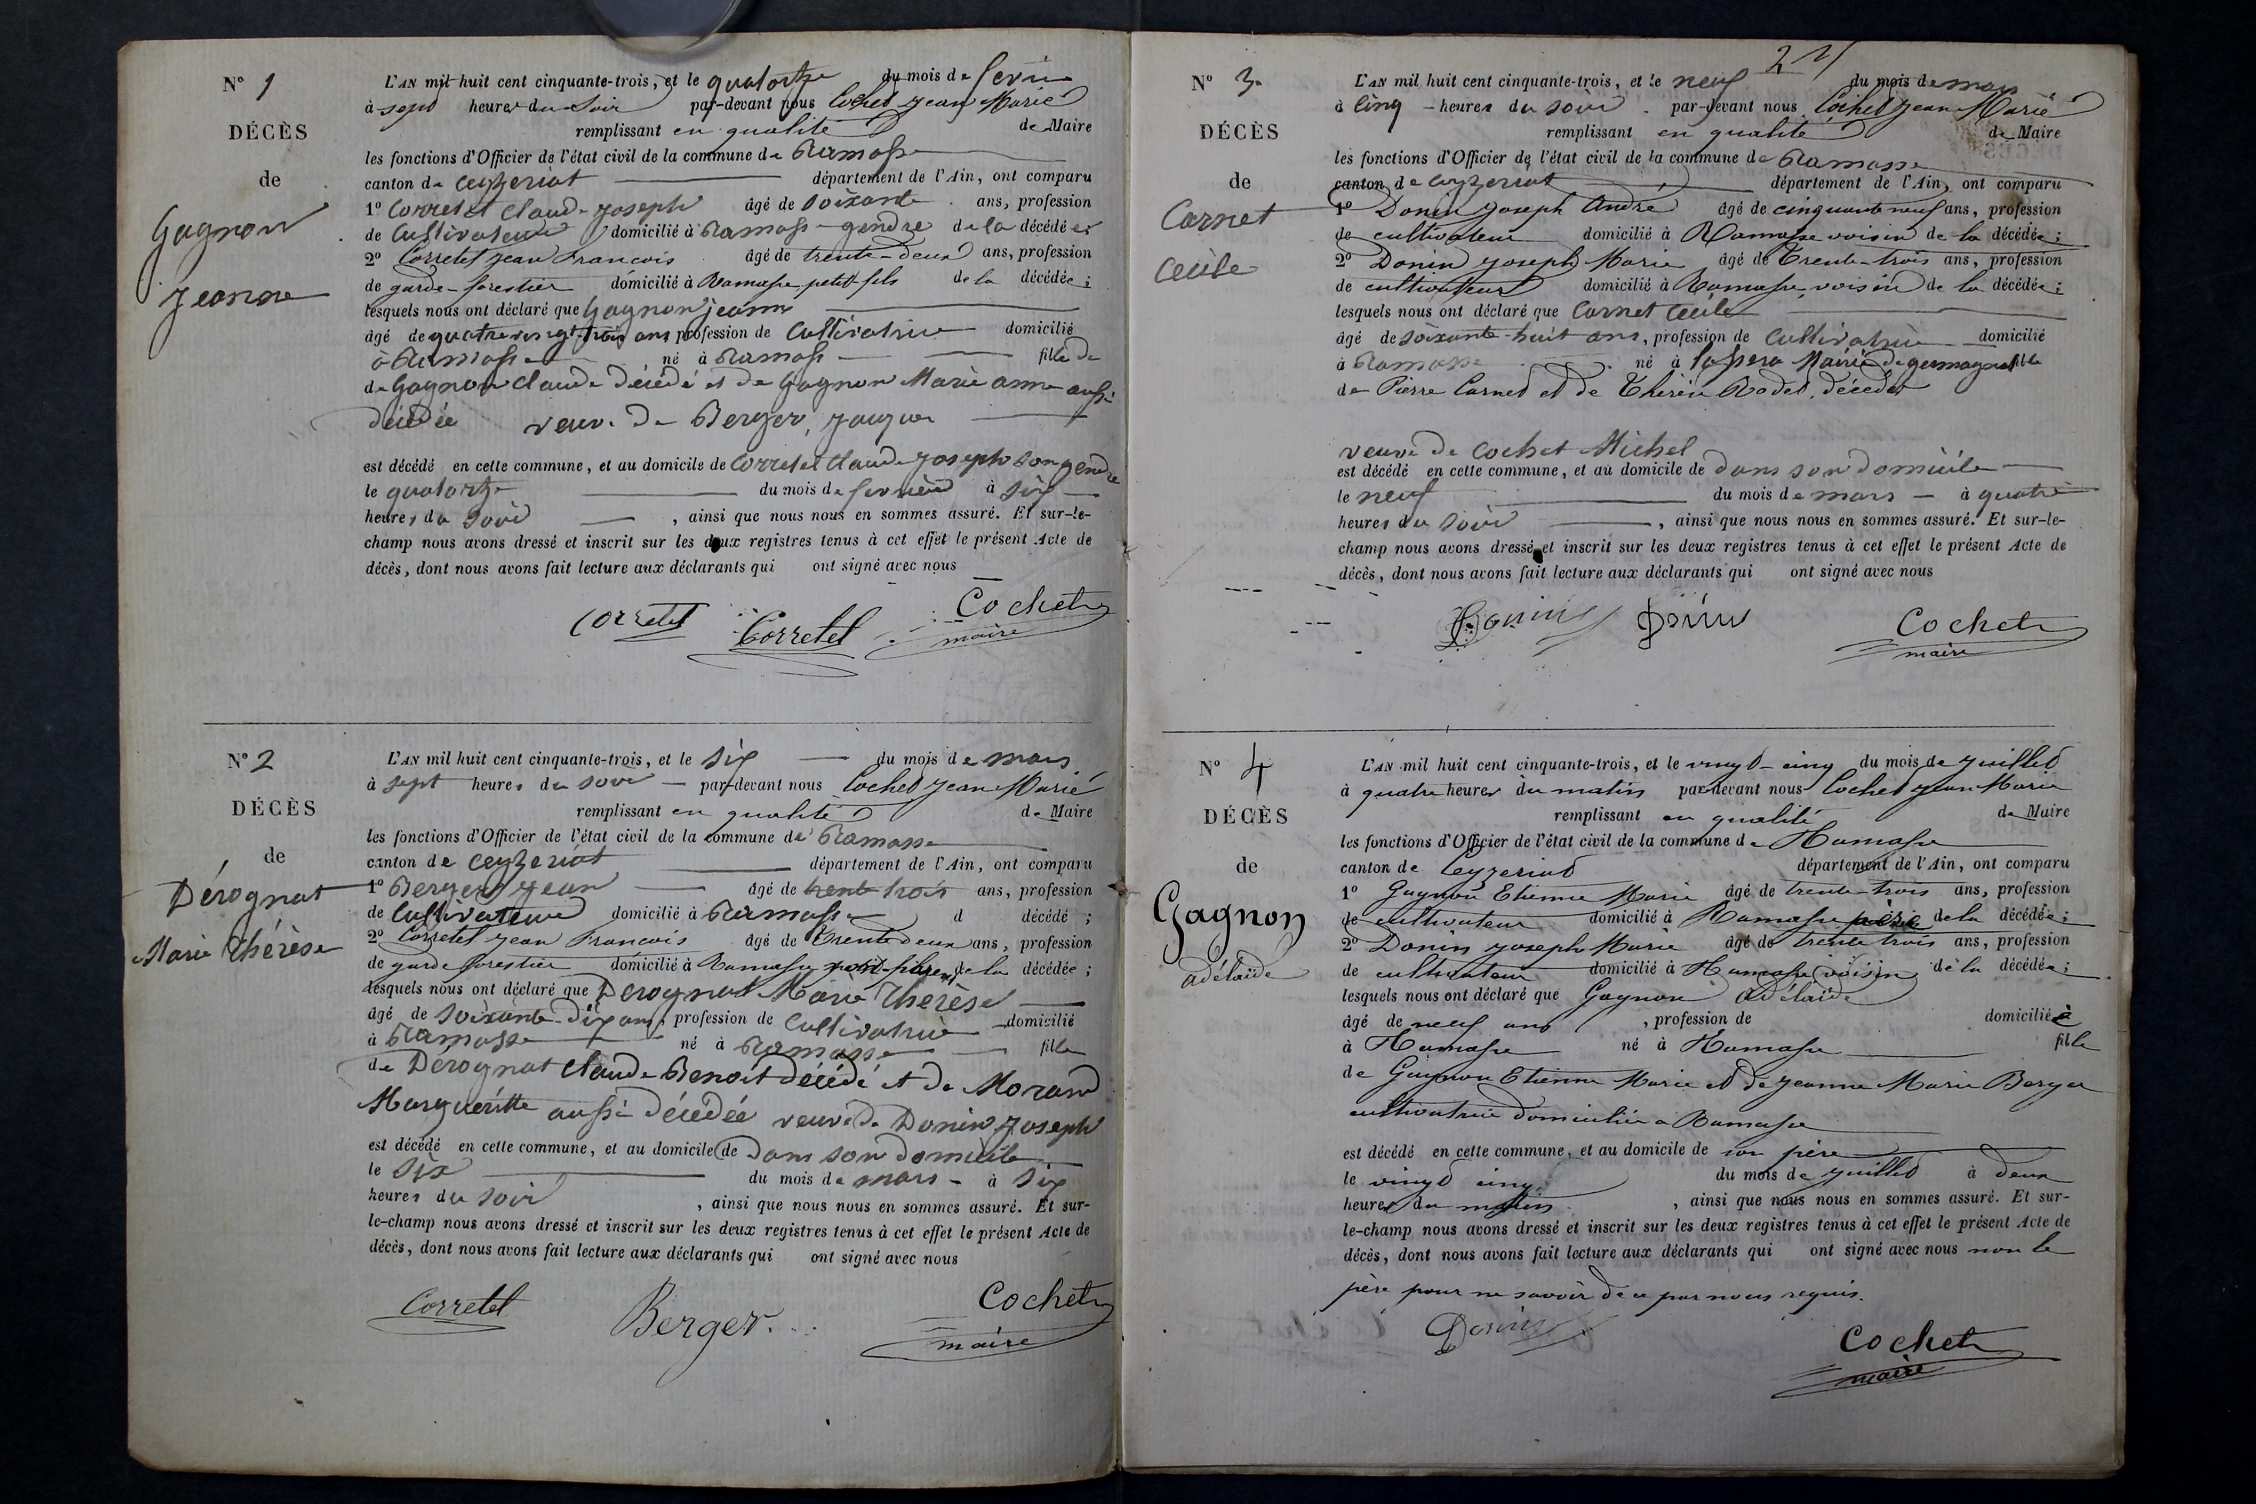 N° 1
DÉCÈS
de
Gagnon
Jeanne
L'AN mil huit cent cinquante-trois, et le quatorze du mois de
à sept heures du soir par-devant nous Cochet Jean Marie
remplissant en qualité de Maire
les fonctions d'Officier de l'état civil de la commune de Ramasse
canton de Ceyzeriat département de l'Ain, ont comparu
1° Corretel Claude Joseph âgé de soixante ans, profession
de Cultivateur domicilié à Ramasse gendre de la décédée
2° Corretel Jean François âgé de trente-deux ans, profession
de garde-forestier domicilié à Ramasse petit fils de la décédée;
lesquels nous ont déclaré que Gagnon Jeanne
âgé de quatre vingt trois ans profession de Cultivatrice domicilié
à Ramasse né à Ramasse fille de
de Gagnon Claude décédé et de Gagnon Marie anne aussi
décédée veuve de Berger, Jacques
est décédé en cette commune, et au domicile de Corretel Claude Joseph son gendre
le quatorze du mois de février à six
heures du soir, ainsi que nous nous en sommes assuré. Et sur-le-
champ nous avons dressé et inscrit sur les deux registres tenus à cet effet le présent Acte de
décès, dont nous avons fait lecture aux déclarants qui ont signé avec nous
Corretel Corretel Cochet
maire
N° 2
DÉCÈS
de
Dérognat
Marie Thérèse
L'AN mil huit cent cinquante-trois, et le six du mois de mars
à sept heures du soir par-devant nous Cochet Jean Marie
remplissant en qualité de Maire
les fonctions d'Officier de l'état civil de la commune de Ramasse
canton de Ceyzeriat département de l'Ain, ont comparu
1° Berger Jean âgé de trente trois ans, profession
de Cultivateur domicilié à Ramasse d décédé ;
2° Corretel Jean François âgé de trente deux ans, profession
de garde forestier domicilié à Ramasse de la décédée ;
lesquels nous ont déclaré que Derognat Marie Thérèse
âgé de soixante-dix ans, profession de Cultivatrice domicilié
à Ramasse né à Ramasse fille
de Dérognat Claude Benoit décédé et de Morand
Marguéritte aussi décédée veuve de Donin Joseph
est décédé en cette commune, et au domicile de dans son domicile
le six du mois de mars à six
heures du soir, ainsi que nous nous en sommes assuré. Et sur-
le-champ nous avons dressé et inscrit sur les deux registres tenus à cet effet le présent Acte de
décès, dont nous avons fait lecture aux déclarants qui ont signé avec nous
Corretel Berger. Cochet
maire
N° 3
DÉCÈS
de
Carnet
Cécile
L'AN mil huit cent cinquante-trois, et le neuf du mois de mars
à cinq heures du soir par-devant nous Cochet Jean Marie
remplissant en qualité de Maire
les fonctions d'Officier de l'état civil de la commune de Ramasse
canton de Ceyzeriat département de l'Ain, ont comparu
1° Donin Joseph André âgé de cinquante neuf ans, profession
de cultivateur domicilié à Ramasse voisin de la décédée ;
2° Donin Joseph Marie âgé de trente-trois ans, profession
de cultivateur domicilié à Ramasse, voisin de la décédée ;
lesquels nous ont déclaré que Carnet Cécile
âgé de soixante-huit ans, profession de Cultivatrice domicilié
à Ramasse né à Mairie de germagnat fille
de Pierre Carnet et de décédés
veuve de Cochet Michel
est décédé en cette commune, et au domicile de dans son domicile
le neuf du mois de mars à quatre
heures du soir, ainsi que nous nous en sommes assuré. Et sur-le-
champ nous avons dressé et inscrit sur les deux registres tenus à cet effet le présent Acte de
décès, dont nous avons fait lecture aux déclarants qui ont signé avec nous
Donin Donin Cochet
maire
N° 4
DÉCÈS
de
Gagnon
adélaïde
L'AN mil huit cent cinquante-trois, et le vingt-cinq du mois de juillet
à quatre heures du matin par-devant nous Cochet Jean Marie
remplissant en qualité de Maire
les fonctions d'Officier de l'état civil de la commune de Ramasse
canton de Ceyzeriat département de l'Ain, ont comparu
1° Gagnon Etienne Marie âgé de trente-trois ans, profession
de cultivateur domicilié à Ramasse père de la décédée ;
2° Donin Joseph Marie âgé de trente trois ans, profession
de cultivateur domicilié à Ramasse, voisin de la décédée ;
lesquels nous ont déclaré que Gagnon Adélaïde
âgé de neuf ans, profession de domicilié
à Ramasse né à Ramasse fille
de Gagnon Etienne Marie et de Jeanne Marie Berger
cultivatrice domiciliée à Ramasse
est décédé en cette commune, et au domicile de son père
le vingt cinq du mois de juillet à deux
heures du matin, ainsi que nous nous en sommes assuré. Et sur-
le-champ nous avons dressé et inscrit sur les deux registres tenus à cet effet le présent Acte de
décès, dont nous avons fait lecture aux déclarants qui ont signé avec nous non le
père pour ne savoir de ce par nous requis.
Donin Cochet
maire